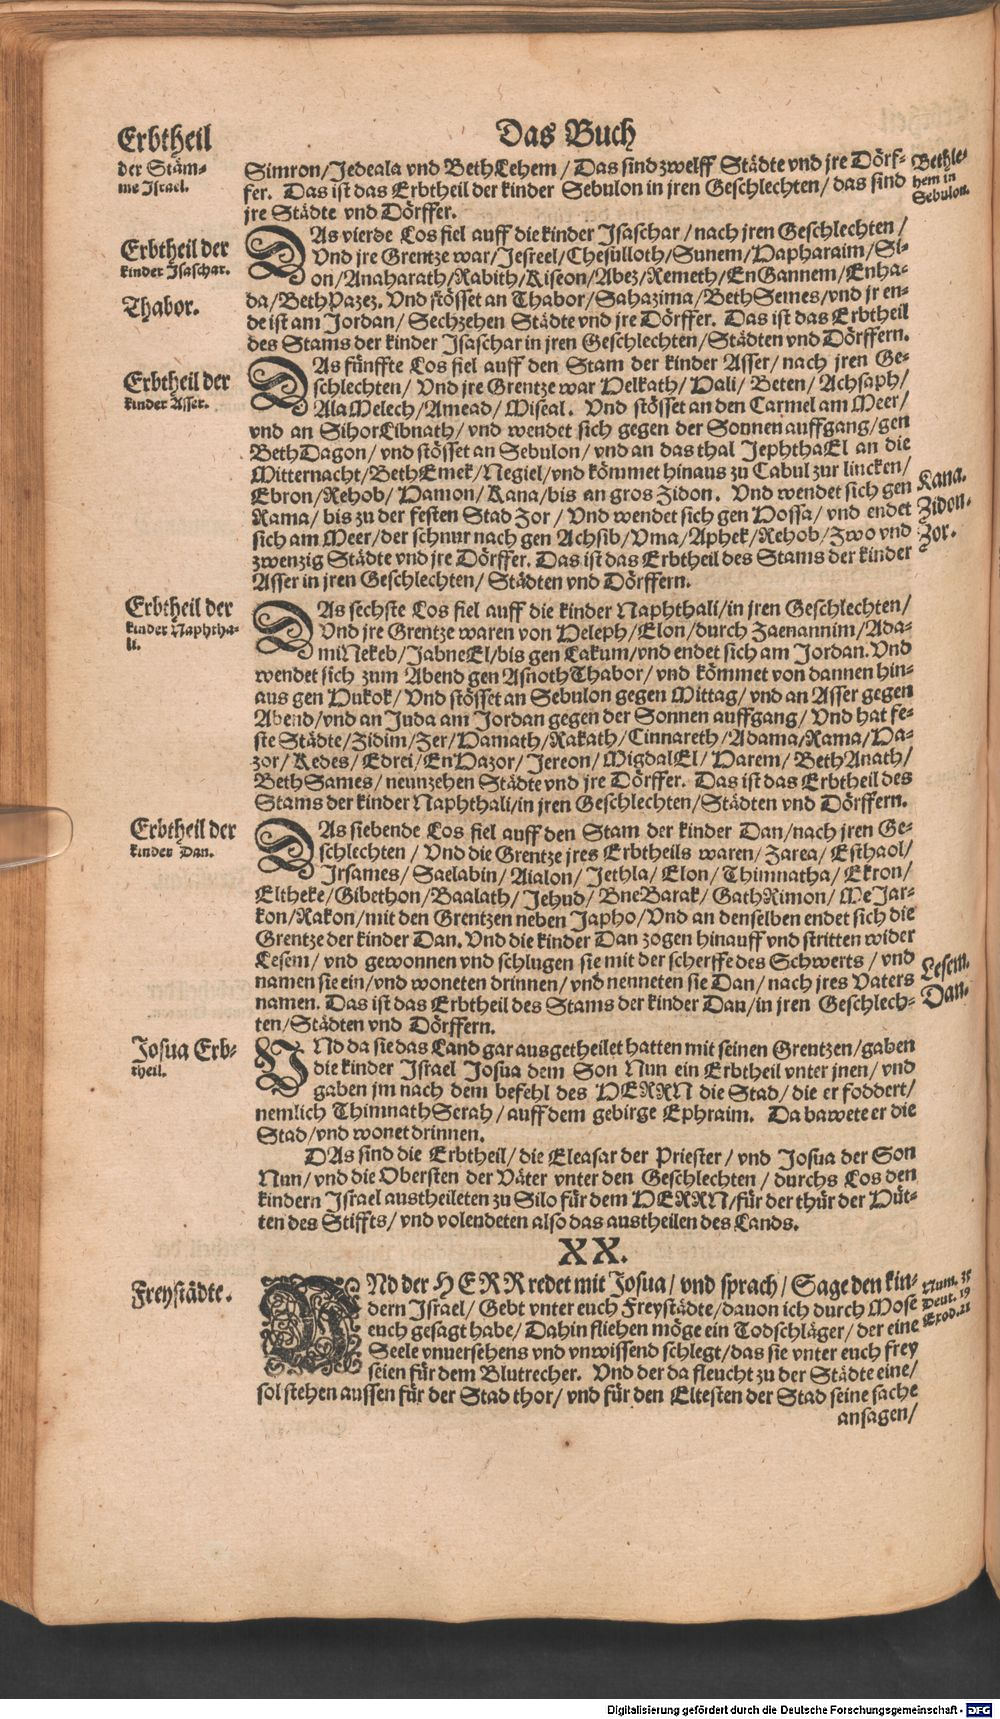 Das Buch
Erbtheil
der Stäm-
me Israel.
Simron/Jedeala vnd BethLehem/Das sind zwelff Städte vnd jre Dörf-
fer. Das ist das Erbtheil der kinder Sebulon in jren Geschlechten/das sind
jre Städte vnd Dörffer.
Bethle-
hem in
Sebulon.
Erbtheil der
kinder Isaschar.
Thabor.
DAs vierde Los fiel auff die kinder Isaschar/nach jren Geschlechten/
Vnd jre Grentze war/Jesreel/Chesulloth/Sunem/Hapharaim/Si-
on/Anaharath/Rabith/Kiseon/Abez/Remeth/EnGannem/Enha-
da/BethPazez. Vnd stösset an Thabor/Sahazima/BethSemes/vnd jr en-
de ist am Jordan/Sechzehen Städte vnd jre Dörffer. Das ist das Erbtheil
des Stams der kinder Isaschar in jren Geschlechten/Städten vnd Dörffern.
Erbtheil der
kinder Asser.
DAs fünffte Los fiel auff den Stam der kinder Asser/nach jren Ge-
schlechten/Vnd jre Grentze war Helkath/Hali/Beten/Achsaph/
AlaMelech/Amead/Miseal. Vnd stösset an den Carmel am Meer/
vnd an SihorLibnath/vnd wendet sich gegen der Sonnen auffgang/gen
BethDagon/vnd stösset an Sebulon/vnd an das thal JephthaEl an die
Mitternacht/BethEmek/Negiel/vnd kömmet hinaus zu Cabul zur lincken/
Ebron/Rehob/Hamon/Kana/bis an gros Zidon. Vnd wendet sich gen
Rama/bis zu der festen Stad Zor/Vnd wendet sich gen Hossa/vnd endet
sich am Meer/der schnur nach gen Achsib/Vma/Aphek/Rehob/Zwo vnd
zwenzig Städte vnd jre Dörffer. Das ist das Erbtheil des Stams der kinder
Asser in jren Geschlechten/Städten vnd Dörffern.
Kana.
Zidon.
Zor.
Erbtheil der
kinder Naphtha-
li.
DAs sechste Los fiel auff die kinder Naphthali/in jren Geschlechten/
Vnd jre Grentze waren von Heleph/Elon/durch Zaenannim/Ada-
miNekeb/JabneEl/bis gen Lakum/vnd endet sich am Jordan. Vnd
wendet sich zum Abend gen AsnothThabor/vnd kömmet von dannen hin-
aus gen Hukok/Vnd stösset an Sebulon gegen Mittag/vnd an Asser gegen
Abend/vnd an Juda am Jordan gegen der Sonnen auffgang/Vnd hat fe-
ste Städte/Zidim/Zer/Hamath/Rakath/Cinnareth/Adama/Rama/Ha-
zor/Kedes/Edrei/EnHazor/Jereon/MigdalEl/Harem/BethAnath/
BethSames/neunzehen Städte vnd jre Dörffer. Das ist das Erbtheil des
Stams der kinder Naphthali/in jren Geschlechten/Städten vnd Dörffern.
Erbtheil der
kinder Dan.
DAs siebende Los fiel auff den Stam der kinder Dan/nach jren Ge-
schlechten/Vnd die Grentze jres Erbtheils waren/Zarea/Esthaol/
Irsames/Saelabin/Aialon/Jethla/Elon/Thimnatha/Ekron/
Eltheke/Gibethon/Baalath/Jehud/BneBarak/GathRimon/MeJar-
kon/Rakon/mit den Grentzen neben Japho/Vnd an denselben endet sich die
Grentze der kinder Dan. Vnd die kinder Dan zogen hinauff vnd stritten wider
Lesem/vnd gewonnen vnd schlugen sie mit der scherffe des Schwerts/vnd
namen sie ein/vnd woneten drinnen/vnd nenneten sie Dan/nach jres Vaters
namen. Das ist das Erbtheil des Stams der kinder Dan/in jren Geschlech-
ten/Städten vnd Dörffern.
Lesem.
Dan.
Josua Erb-
theil.
VNd da sie das Land gar ausgetheilet hatten mit seinen Grentzen/gaben
die kinder Israel Josua dem Son Nun ein Erbtheil vnter jnen/vnd
gaben jm nach dem befehl des HERRN die Stad/die er foddert/
nemlich ThimnathSerah/auff dem gebirge Ephraim. Da bawete er die
Stad/vnd wonet drinnen.
DAs sind die Erbtheil/die Eleasar der Priester/vnd Josua der Son
Nun/vnd die Obersten der Väter vnter den Geschlechten/durchs Los den
kindern Israel austheileten zu Silo für dem HERRN/für der thür der Hüt-
ten des Stiffts/vnd volendeten also das austheilen des Lands.
XX.
Freystädte.
VNd der HERR redet mit Josua/vnd sprach/Sage den kin-
dern Israel/Gebt vnter euch Freystädte/dauon ich durch Mose
euch gesagt habe/Dahin fliehen möge ein Todschläger/der eine
Seele vnuersehens vnd vnwissend schlegt/das sie vnter euch frey
seien für dem Blutrecher. Vnd der da fleucht zu der Städte eine/
sol stehen aussen für der Stad thor/vnd für den Eltesten der Stad seine sache
ansagen/
Num. 35
Deut. 19
Exod. 21
Digitalisierung gefördert durch die Deutsche Forschungsgemeinschaft - DFG